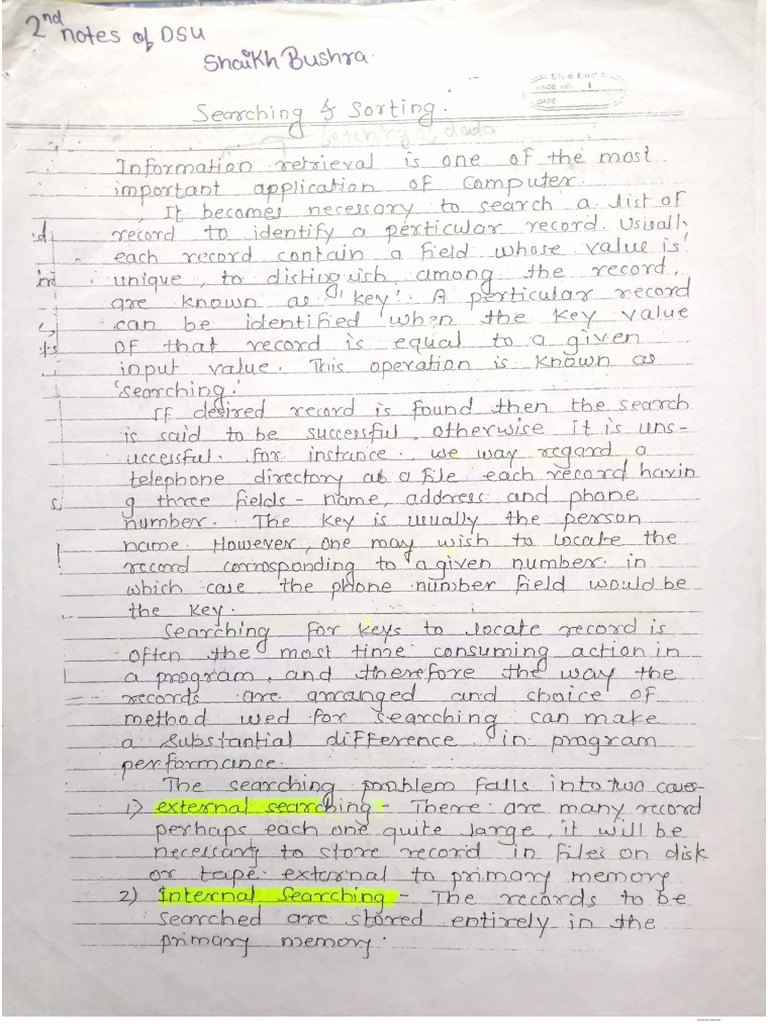 2nd notes of DSU
Shaikh Bushra.
Blue Bird
PAGE NO. 1
DATE
Searching & Sorting.
fetching of data
Information retrieval is one of the most
important application of computer.
It becomes necessary to search a list of
record to identify a perticular record. Usually
each record contain a field whose value is
unique, to distinguish among the record,
are known as 'key'. A perticular record
can be identified when the key value
of that record is equal to a given
input value. This operation is known as
'searching.'
If desired record is found then the search
is said to be successful, otherwise it is uns-
uccessful. for instance, we way regard a
telephone directory as a file each record havin
g three fields - name, address and phone
number. The key is usually the person
name. However, one may wish to locate the
record corrosponding to a given number. in
which case the phone number field would be
the key.
Searching for keys to locate record is
often the most time consuming action in
a program, and therefore the way the
records are arranged and choice of
method used for searching can make
a substantial difference in program
performance.
The searching problem falls into two cases-
1) external searching - There are many record
perhaps each one quite large, it will be
necessary to store record in files on disk
or tape external to primary memory
2) Internal Searching - The records to be
searched are stored entirely in the
primary memory.